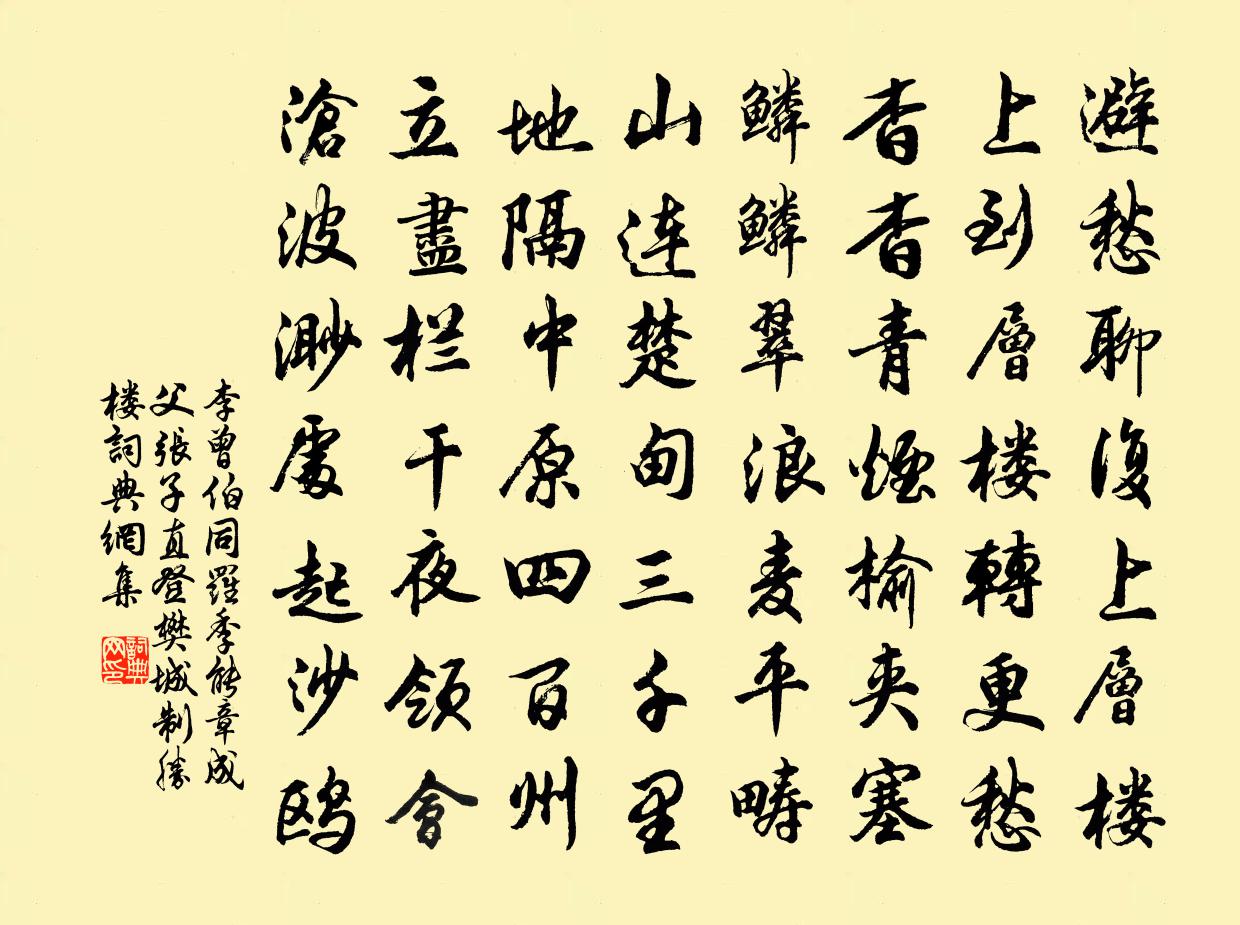 避愁聊復上層楼
上到層楼轉更愁
杳杳青煙榆夹塞
鱗鱗翠浪麦平疇
山連楚甸三千里
地隔中原四百州
立盡栏干夜领會
滄波渺處起沙鸥
李曾伯同羅季能章成
父張子直登樊城制勝
楼詞典網集
詞典
网印